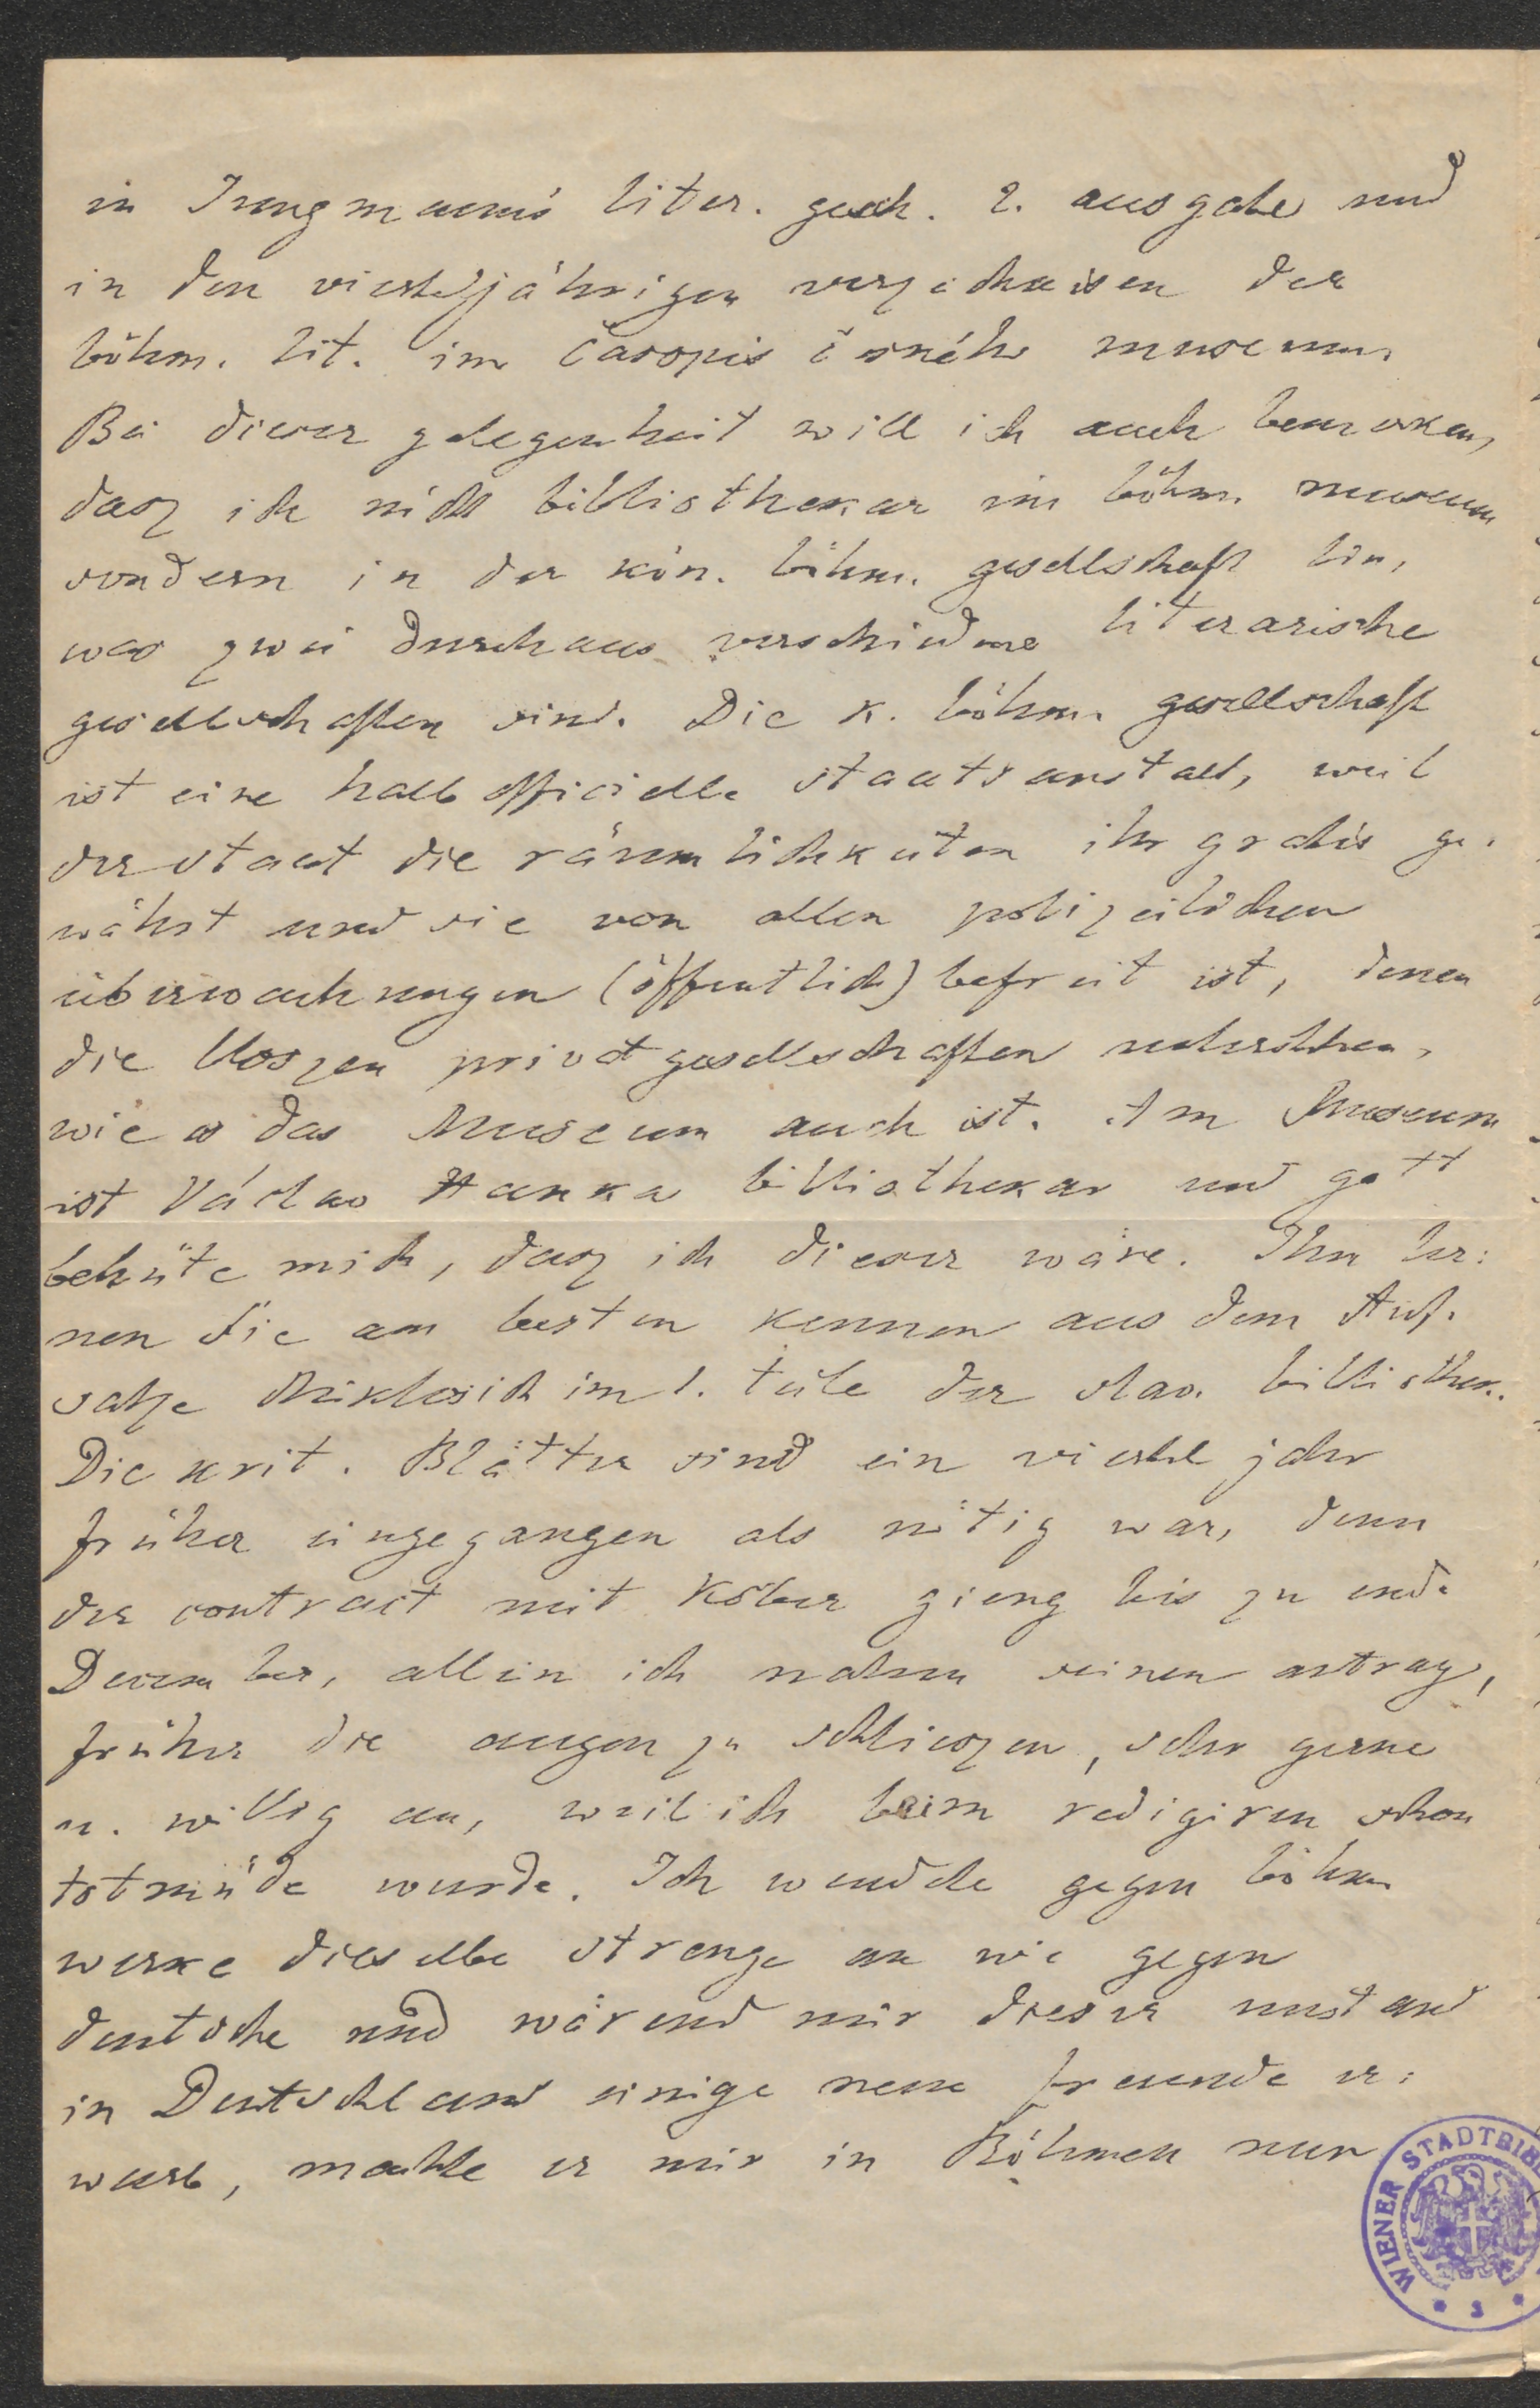 in Jungmanns liter. gesch. 2. ausgabe und
in den vierteljährigen verzeichnisen der
böhm. lit. im časopis českého museum.
Bei dieser gelegenheit will ich auch bemerken,
dasz ich nicht bibliothekar im böhm. museum
sondern in der kön. böhm. gesellschaft bin,
was zwei durchaus verschiedene literarische
gesellschaften sind. Die k. böhm. gesellschaft
ist eine halb officielle staatsanstalt, weil
der staat die räumlichkeiten ihr gratis ge-
währt und sie von allen polizeilichen
überwachungen (öffentlich) befreit ist, denen
die bloszen privatgesellschaften unterstehen,
wie es das Museum auch ist. Am Museum
ist Václav Hanka bibliothekar und gott
behüte mich, dasz ich dieser wäre. Ihn ler:
nen Sie am besten kennen aus dem Auf-
satze Miklosich im 1. teile der slav. bibliothek.
Die krit. Blätter sind ein viertel jahr
früher eingegangen als nötig war, denn
der contract mit Kober gieng bis zu ende
December, allein ich nahm seinen antrag,
früher die augen zu schlieszen, sehr gerne
u. willig an, weil ich beim redigiren schon
totmüde wurde. Ich wendete gegen böhm.
werke dieselbe strenge an wie gegen
deutsche und wärend mir dieser umstand
in Deutschland einige neue freunde er:
warb, machte er mir in Böhmen nur
WIENER STADTBIB